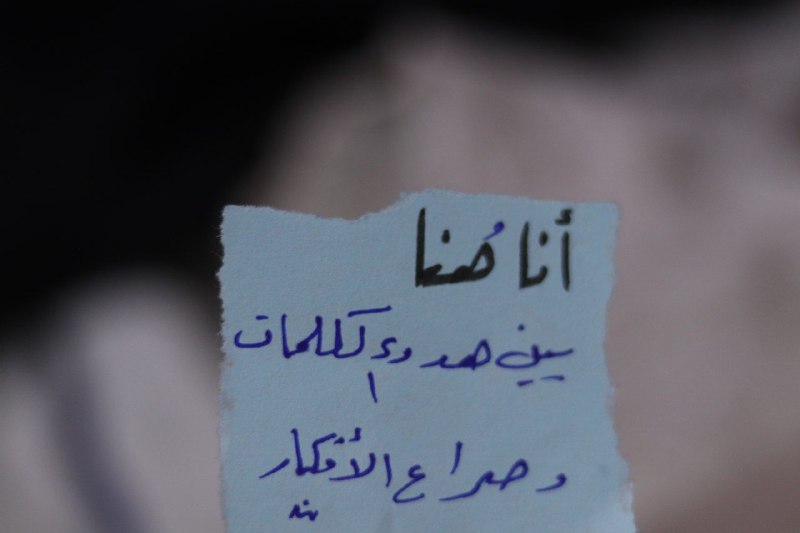 أنا هُنا
بين هدوء الكلمات
وصراع الأفكار